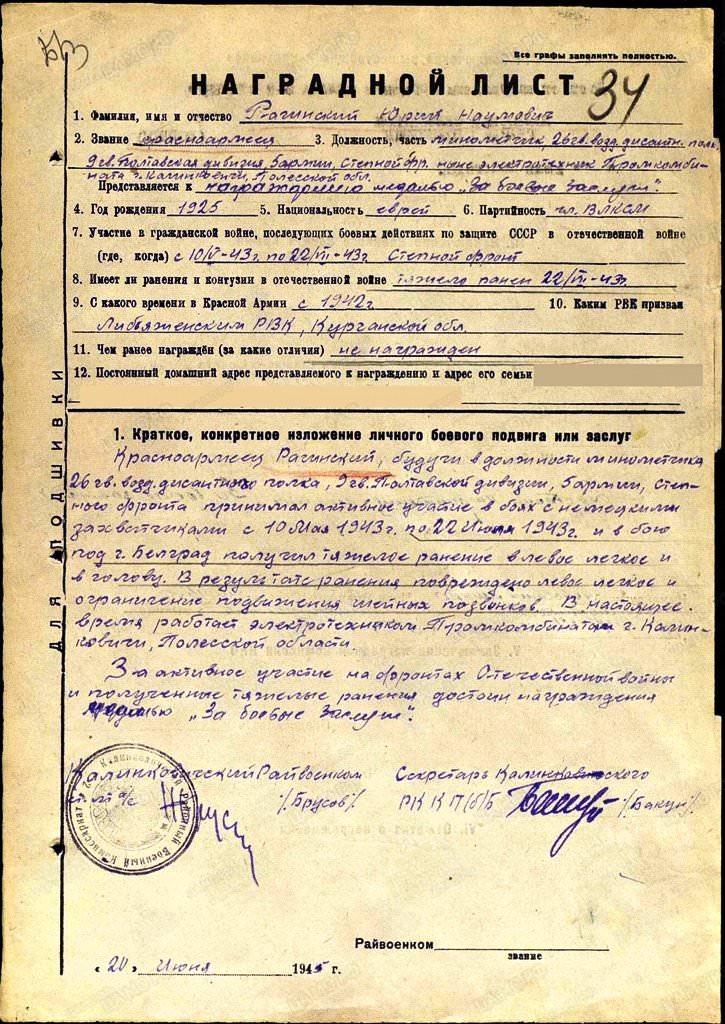 Все графы заполнять полностью.
НАГРАДНОЙ ЛИСТ 34
1. Фамилия, имя и отчество Рагинский Юрий Наумович
2. Звание красноармеец 3. Должность, часть минометчик 26 гв. возд. дисантн. полк,
9 гв. Полтавская дивизия 5 армии, Степной фр. ныне электротехник Промкомби-
ната г. Калинковичи, Полесской обл.
Представляется к награждению медалью „За боевые заслуги".
4. Год рождения 1925 5. Национальность еврей 6. Партийность чл. ВЛКСМ
7. Участие в гражданской войне, последующих боевых действиях по защите СССР в отечественной войне
(где, когда) с 10/V-43г. по 22/VII-43г. Степной фронт
8. Имеет ли ранения и контузии в отечественной войне тяжело ранен 22/VII-43г.
9. С какого времени в Красной Армии с 1942г. 10. Каким РВК призван
РВК, Курганской обл.
11. Чем ранее награждён (за какие отличия) не награжден
12. Постоянный домашний адрес представляемого к награждению и адрес его семьи
ДЛЯ ПОДШИВКИ
1. Краткое, конкретное изложение личного боевого подвига или заслуг
Красноармеец Рагинский, будучи в должности минометчика
26 гв. возд. дисантного полка, 9 гв. Полтавской дивизии, 5 армии, Степ-
ного фронта принимал активное участие в боях с немецкими
захватчиками с 10 Мая 1943г. по 22 Июля 1943г. и в бою
под г. Белград получил тяжелое ранение в левое легкое и
в голову. В результате ранения повреждено левое легкое и
ограничение подвижения шейных позвонков. В настоящее
время работает электротехником Промкомбината г. Калин-
ковичи, Полесской области.
За активное участие на фронтах Отечественной войны
и полученные тяжелые ранения достоин награждения
медалью „За боевые заслуги".
Калинковичский Райвоенком Секретарь Калинковичского
/Брусов/ РК КП(б)Б
Райвоенком
звание
„20" Июня 1945 г.